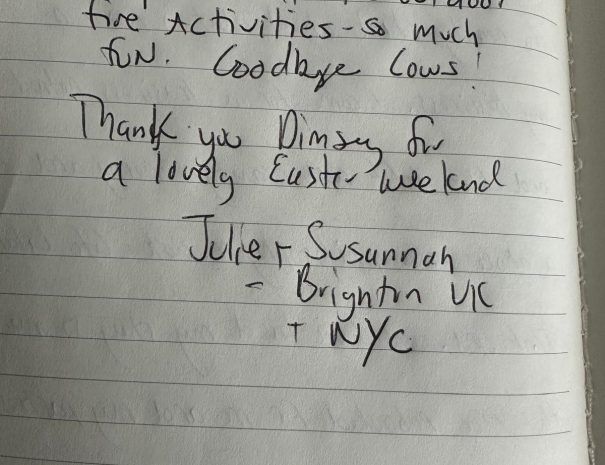 fire Activities - so much
fun. Goodbye Cows!
Thank you Dimsey for
a lovely Easter weekend
Julie + Susannah
- Brighton UK
+ NYC